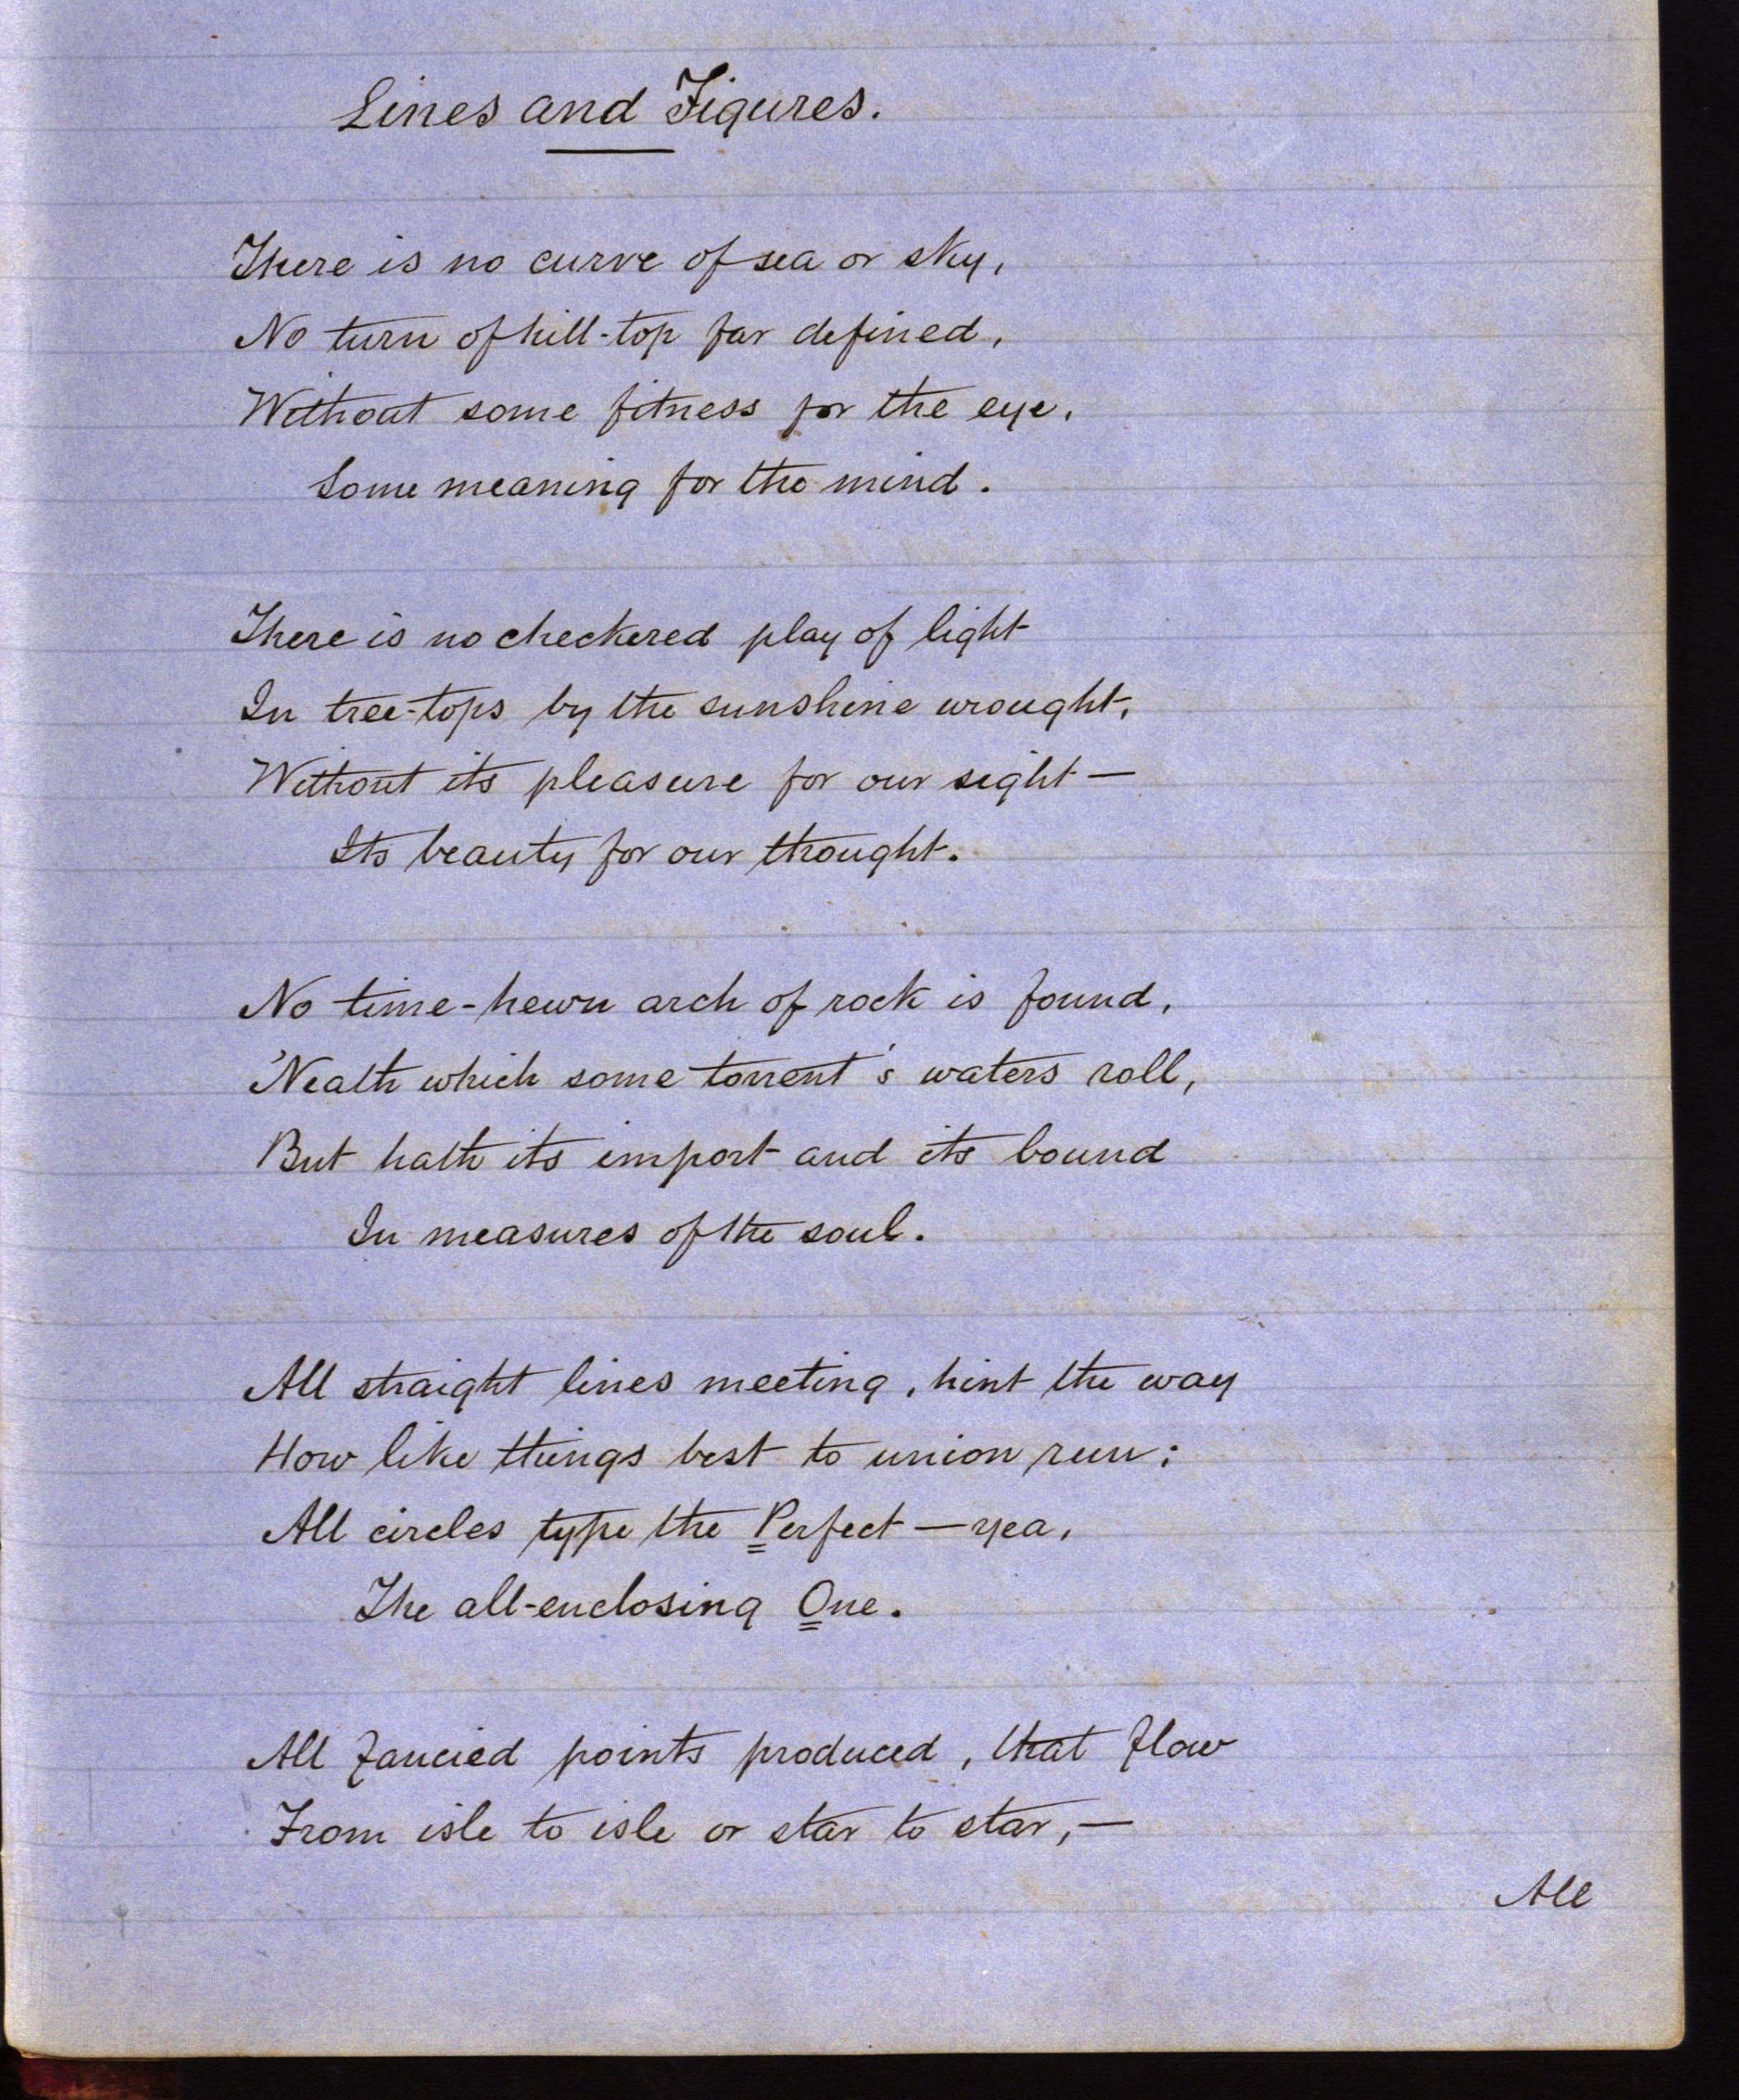 Lines and Figures.
There is no curve of sea or sky,
No turn of hill-top far defined,
Without some fitness for the eye,
Some meaning for the mind.
There is no checkered play of light
In tree-tops by the sunshine wrought,
Without its pleasure for our sight—
Its beauty for our thought.
No time-hewn arch of rock is found,
'Neath which some torrent's waters roll,
But hath its import and its bound
In measures of the soul.
All straight lines meeting, hint the way
How like things best to union run;
All circles type the Perfect—yea,
The all-enclosing One.
All fancied points produced, that flow
From isle to isle or star to star,—
All